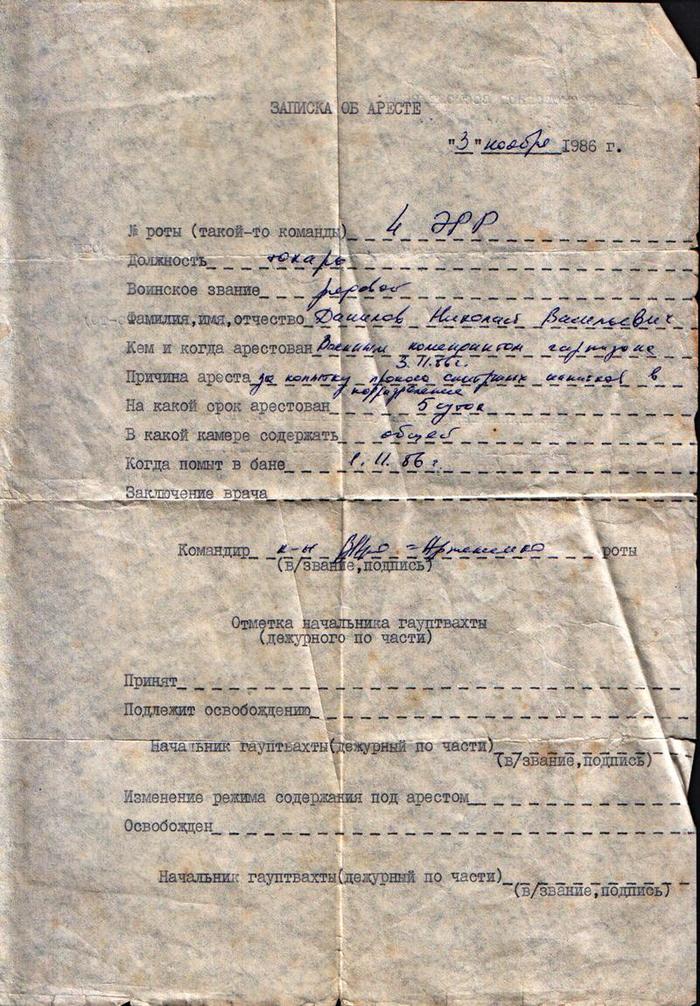 ЗАПИСКА ОБ АРЕСТЕ
"3" ноября 1986 г.
№ роты (такой-то команды) 4 ЭРР
Должность токарь
Воинское звание рядовой
Фамилия,имя,отчество Данилов Николай Васильевич
Кем и когда арестован Военным комендантом гарнизона
3.11.86г.
Причина ареста за попытку проноса спиртных напитков в
подразделение
На какой срок арестован 5 суток
В какой камере содержать общей
Когда помыт в бане 1.11.86г.
Заключение врача
Командир к-н роты
(в/звание,подпись)
Отметка начальника гауптвахты
(дежурного по части)
Принят
Подлежит освобождению
Начальник гауптвахты(дежурный по части)
(в/звание,подпись)
Изменение режима содержания под арестом
Освобожден
Начальник гауптвахты(дежурный по части)
(в/звание,подпись)